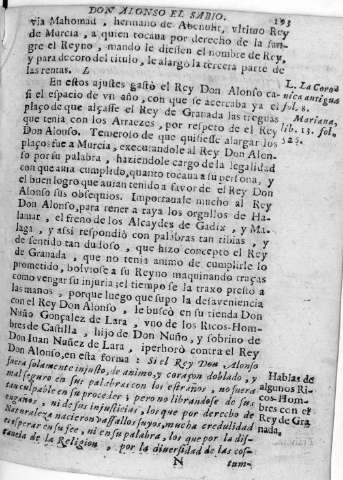 DON ALONSO EL SABIO. 193
via Mahomad, hermano de Abenhut, vltimo Rey
de Murcia, a quien tocaua por derecho de la san-
gre el Reyno, mando le diessen el nombre de Rey,
y para decoro del titulo, le alargo la tercera parte de
las rentas. L
En estos ajustes gastò el Rey Don Alonso ca-
si el espacio de vn año, con que se acercaba ya el
plaço de que alçasse el Rey de Granada las treguas
que tenia con los Arraezes, por respeto de el Rey
Don Alonso. Temeroso de que quisiesse alargar los
plaços fue a Murcia, executandole al Rey Don Alon-
so por su palabra, haziendole cargo de la legalidad
con que auia cumplido, quanto tocaua a su persona, y
el buen logro que auian tenido a favor de el Rey Don
Alonso sus obsequios. Importauale mucho al Rey
Don Alonso, para tener a raya los orgullos de Ha-
lamar, el freno de los Alcaydes de Gadiz, y Ma-
laga, y assi respondiò con palabras tan tibias, y
de sentido tan dudoso, que hizo concepto el Rey
de Granada, que no tenia animo de cumplirle lo
prometido, bolviose a su Reyno maquinando traças
como vengar su injuria; el tiempo se la traxo presto a
las manos, porque luego que supo la desavenencia
con el Rey Don Alonso, le buscò en su tienda Don
Nuño Gonçalez de Lara, vno de los Ricos-Hom-
bres de Castilla, hijo de Don Nuño, y sobrino de
Don Juan Nuñez de Lara, iperhorò contra el Rey
Don Alonso, en esta forma: Si el Rey Don Alonso
fuera solamente injusto, de animo, y coraçon doblado, y
mal seguro en sus palabras con los estraños, no fuera
tan culpable en su proceder; pero no librandose de sus
engaños, ni de sus injusticias, los que por derecho de
Naturaleza nacieron vassallos suyos, mucha credulidad
es esperar en su fee, ni en su palabra, los que por la dis-
tancia de la Religion, por la diversidad de las cos-
N
tum-
L. La Coro-
nica antigua
fol. 8.
Mariana,
lib. 13. fol.
Hablas de
algunos Ri-
cos-Hom-
bres con el
Rey de Gra
nada,